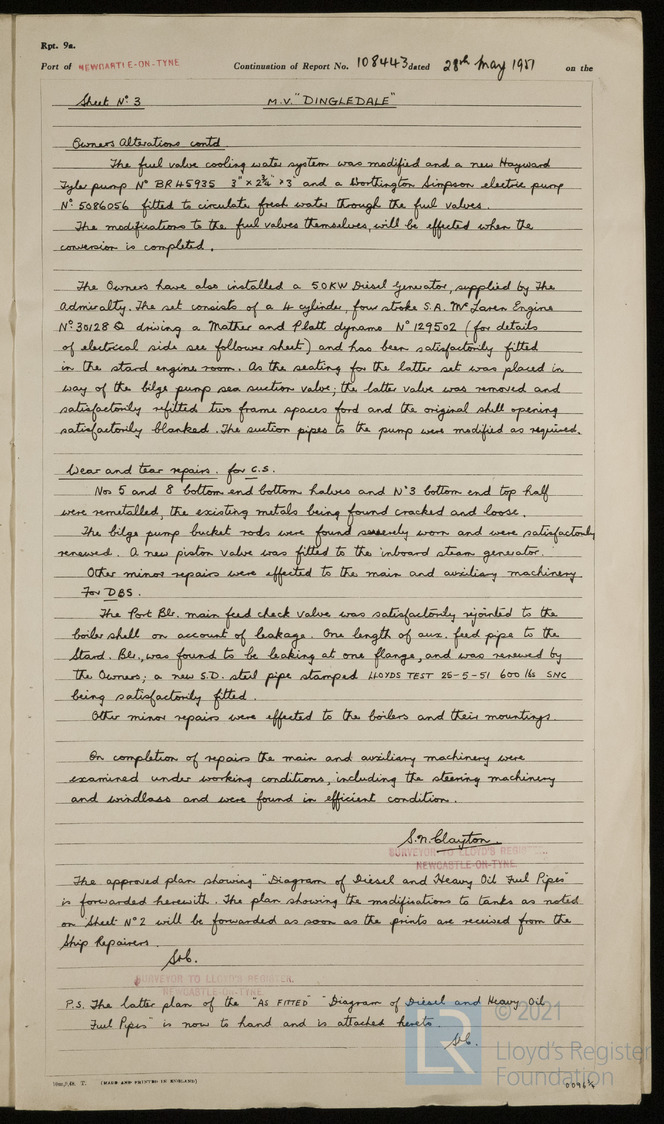 Rpt. 9a.
Port of NEWCASTLE-ON-TYNE Continuation of Report No. 108443 dated 28th May 1951 on the
Sheet No. 3 M.V. "DINGLEDALE"
Owners Alterations contd
The fuel valve cooling water system was modified and a new Hayward
Tyler pump No BR45935 3" x 2¾" x 3" and a Worthington Simpson electric pump
No. 5086056 fitted to circulate fresh water through the fuel valves.
The modifications to the fuel valves themselves, will be effected when the
conversion is completed.
The Owners have also installed a 50KW Diesel Generator, supplied by the
Admiralty. The set consists of a 4 cylinder, four stroke S.A. McLaren Engine
No. 30128 Q driving a Mather and Platt dynamo No 129502 (for details
of electrical side see follower sheet) and has been satisfactorily fitted
in the stard engine room. As the seating for the latter set was placed in
way of the bilge pump sea suction valve; the latter valve was removed and
satisfactorily refitted two frame spaces ford and the original shell opening
satisfactorily blanked. The suction pipes to the pump were modified as required.
Wear and tear repairs. for C.S.
Nos 5 and 8 bottom end bottom halves and No 3 bottom end top half
were remetalled, the existing metals being found cracked and loose.
The bilge pump bucket rods were found severely worn and were satisfactorily
renewed. A new piston valve was fitted to the inboard steam generator.
Other minor repairs were effected to the main and auxiliary machinery
For DBS.
The Port Blr. main feed check valve was satisfactorily rejointed to the
boiler shell on account of leakage. One length of aux. feed pipe to the
Stard. Blr., was found to be leaking at one flange, and was renewed by
the Owners; a new S.D. steel pipe stamped LLOYDS TEST 25-5-51 600 lbs SNC
being satisfactorily fitted.
Other minor repairs were effected to the boilers and their mountings.
On completion of repairs the main and auxiliary machinery were
examined under working conditions, including the steering machinery
and windlass and were found in efficient condition.
S.N. Clayton.
SURVEYOR TO LLOYD'S REGISTER
NEWCASTLE-ON-TYNE
The approved plan showing "Diagram of Diesel and Heavy Oil Fuel Pipes"
is forwarded herewith. The plan showing the modifications to tanks as noted
on Sheet No 2 will be forwarded as soon as the prints are received from the
Ship Repairers.
SNC.
SURVEYOR TO LLOYD'S REGISTER.
NEWCASTLE-ON-TYNE
P.S. The latter plan of the "AS FITTED" "Diagram of Diesel and Heavy Oil
Fuel Pipes" is now to hand and is attached hereto.
SNC.
© 2021
LR
Lloyd's Register
Foundation
T. (MADE AND PRINTED IN ENGLAND)